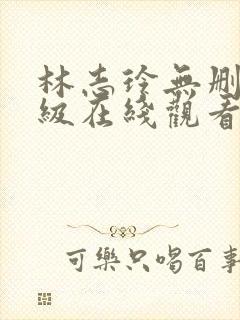 林志玲無删
級在綫觀看
可樂只喝百事